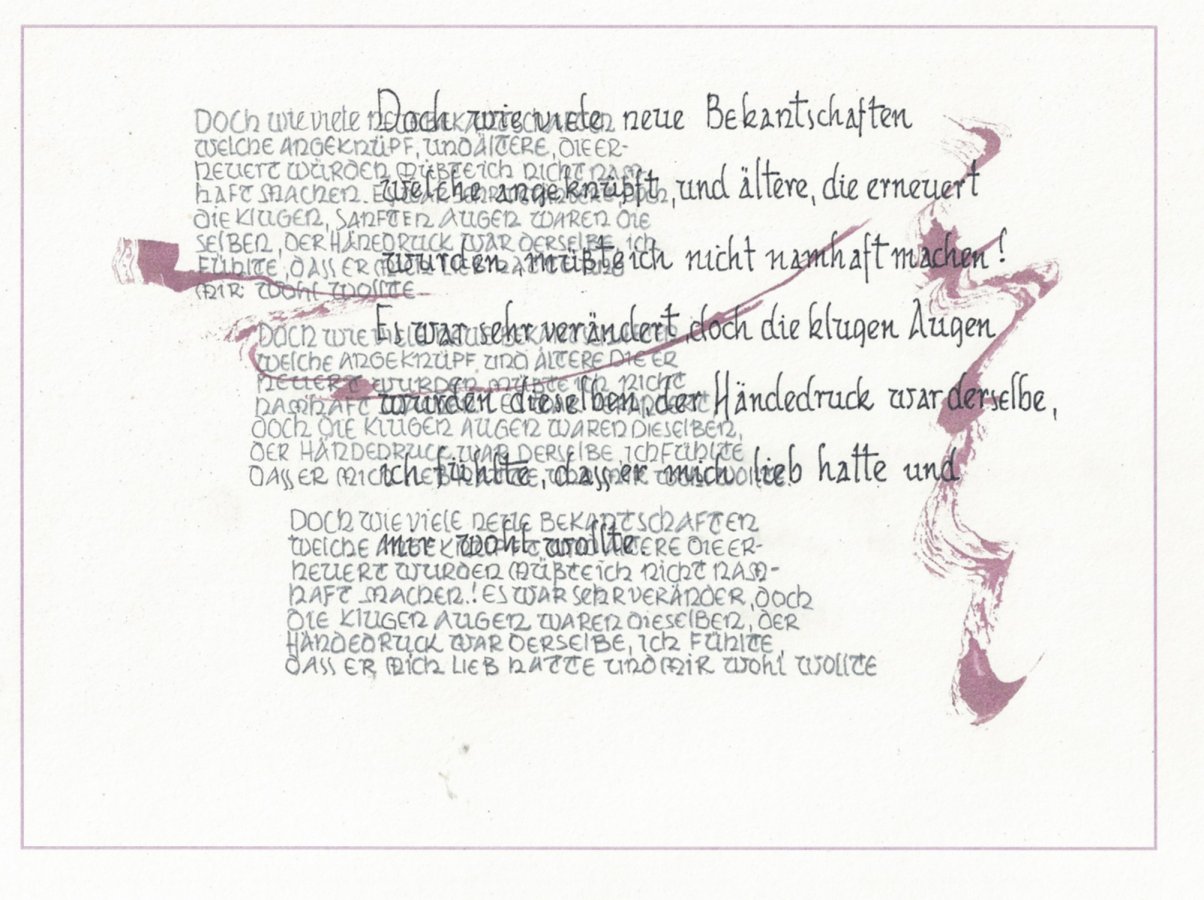 Doch wie viele neue Bekantschaften
welche angeknüpft, und ältere, die erneuert
wurden müßte ich nicht namhaft machen!
Es war sehr verändert, doch die klugen Augen
wurden dieselben, der Händedruck war derselbe,
ich fühlte, dass er mich lieb hatte und
mir wohl wollte.
DOCH WIE VIELE
WELCHE ANGEKNÜPF, UND ÄLTERE, DIE ER-
NEUERT WÜRDEN MÜßTE ICH NICHT NAM-
HAFT MACHEN.
DIE KLUGEN, SANFTEN AUGEN WAREN DIE
SELBEN, DER HÄNEDRUCK WAR DERSELBE, ICH
FÜHLTE, DASS ER
MIR WOHL WOLLTE
DOCH WIE
WELCHE ANGEKNÜPF, UND ÄLTERE DIE ER
NEUERT WURDEN MÜßTE ICH NICHT
NAMHAFT
DOCH DIE KLUGEN AUGEN WAREN DIESELBEN,
DER HÄNDEDRUCK WAR DERSELBE ICH FÜHLTE
DASS ER MICH
DOCH WIE VIELE NEUE BEKANTSCHAFTEN
WELCHE ÄLTERE DIE ER-
NEUERT WURDEN MÜßTE ICH NICHT NAM-
HAFT MACHEN.! ES WAR SEHR VERÄNDER, DOCH
DIE KLUGEN AUGEN WAREN DIESELBEN, DER
HÄNDEDRUCK WAR DERSELBE, ICH FÜHLTE,
DASS ER MICH LIEB HATTE UND MIR WOHL WOLLTE